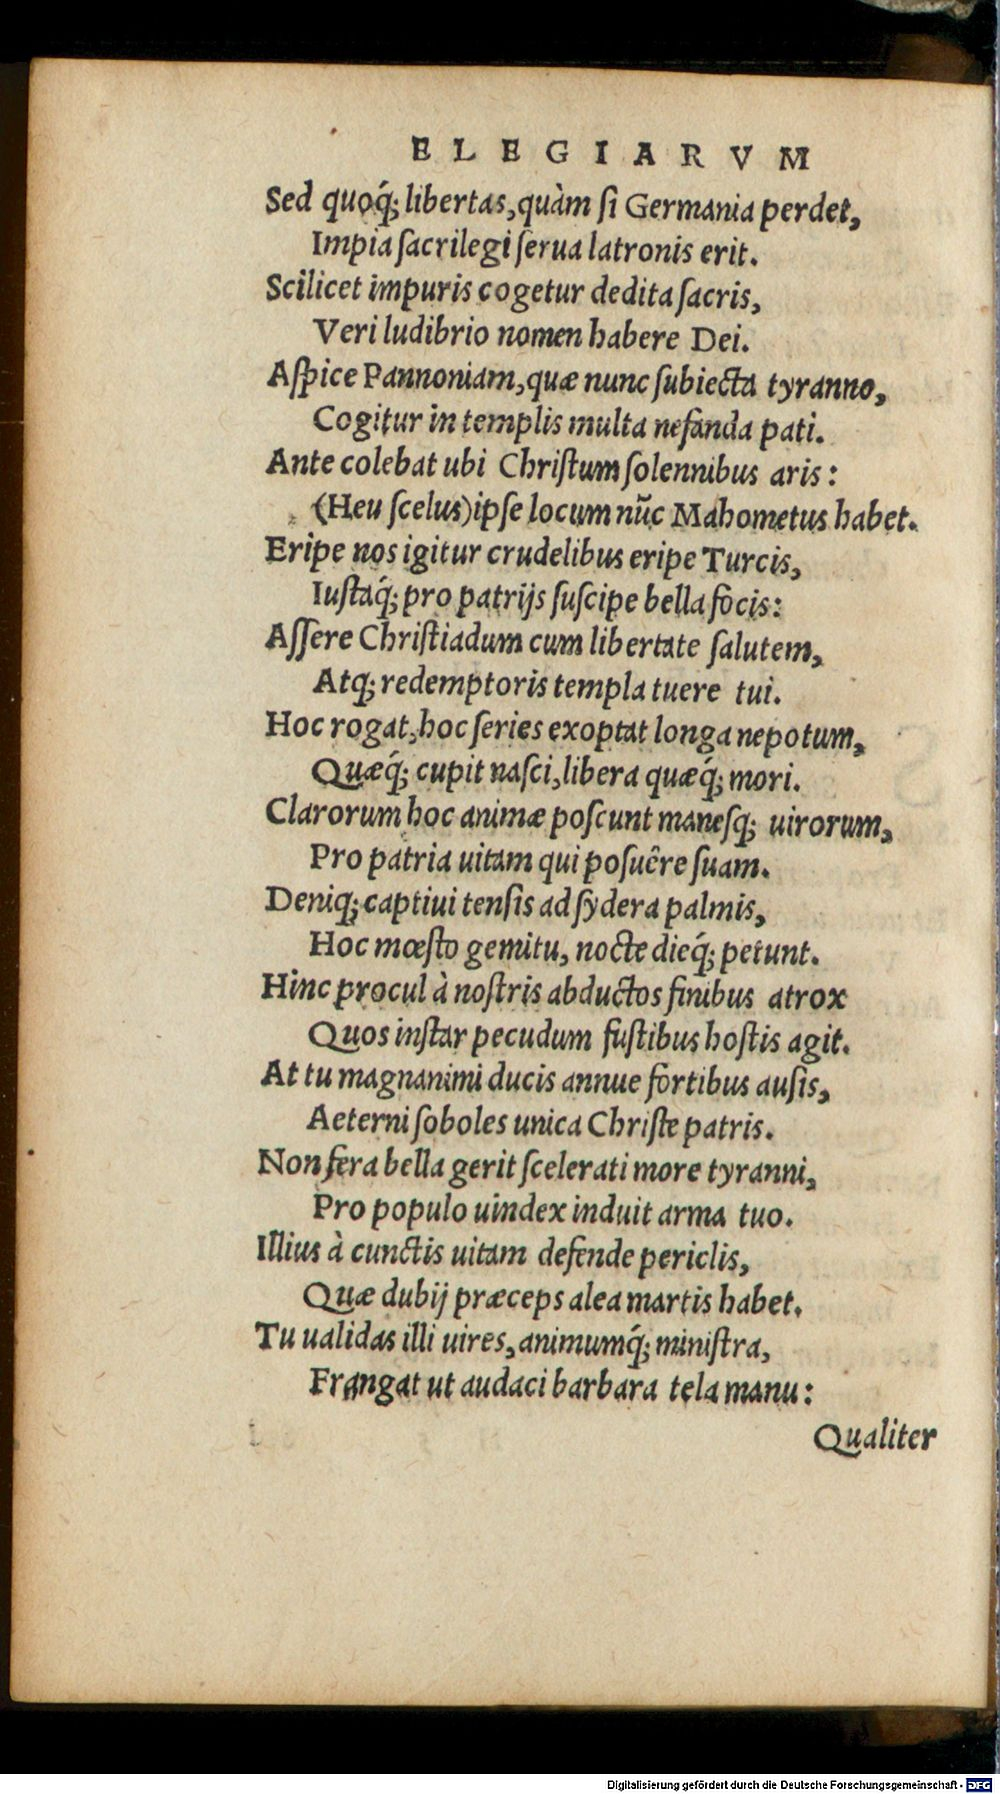 ELEGIARVM
Sed quoq́; libertas, quàm ſi Germania perdet,
Impia ſacrilegi ſerua latronis erit.
Scilicet impuris cogetur dedita ſacris,
Veri ludibrio nomen habere Dei.
Aſpice Pannoniam, quæ nunc ſubiecta tyranno,
Cogitur in templis multa nefanda pati.
Ante colebat ubi Chriſtum ſolennibus aris:
(Heu ſcelus) ipſe locum nũc Mahometus habet.
Eripe nos igitur crudelibus eripe Turcis,
Iuſtaq́; pro patrijs ſuſcipe bella focis:
Aſſere Chriſtiadum cum libertate ſalutem,
Atq; redemptoris templa tuere tui.
Hoc rogat, hoc ſeries exoptat longa nepotum,
Quæq́; cupit naſci, libera quæq́; mori.
Clarorum hoc animæ poſcunt maneſq; uirorum,
Pro patria uitam qui poſuêre ſuam.
Deniq; captiui tenſis ad ſydera palmis,
Hoc mœſto gemitu, nocte dieq́; petunt.
Hinc procul à noſtris abductos finibus atrox
Quos inſtar pecudum fuſtibus hoſtis agit.
At tu magnanimi ducis annue fortibus auſis,
Aeterni ſoboles unica Chriſte patris.
Non fera bella gerit ſcelerati more tyranni,
Pro populo uindex induit arma tuo.
Illius à cunctis uitam defende periclis,
Quæ dubij præceps alea martis habet.
Tu ualidas illi uires, animumq́; miniſtra,
Frangat ut audaci barbara tela manu:
Qualiter
Digitalisierung gefördert durch die Deutsche Forschungsgemeinschaft - DFG